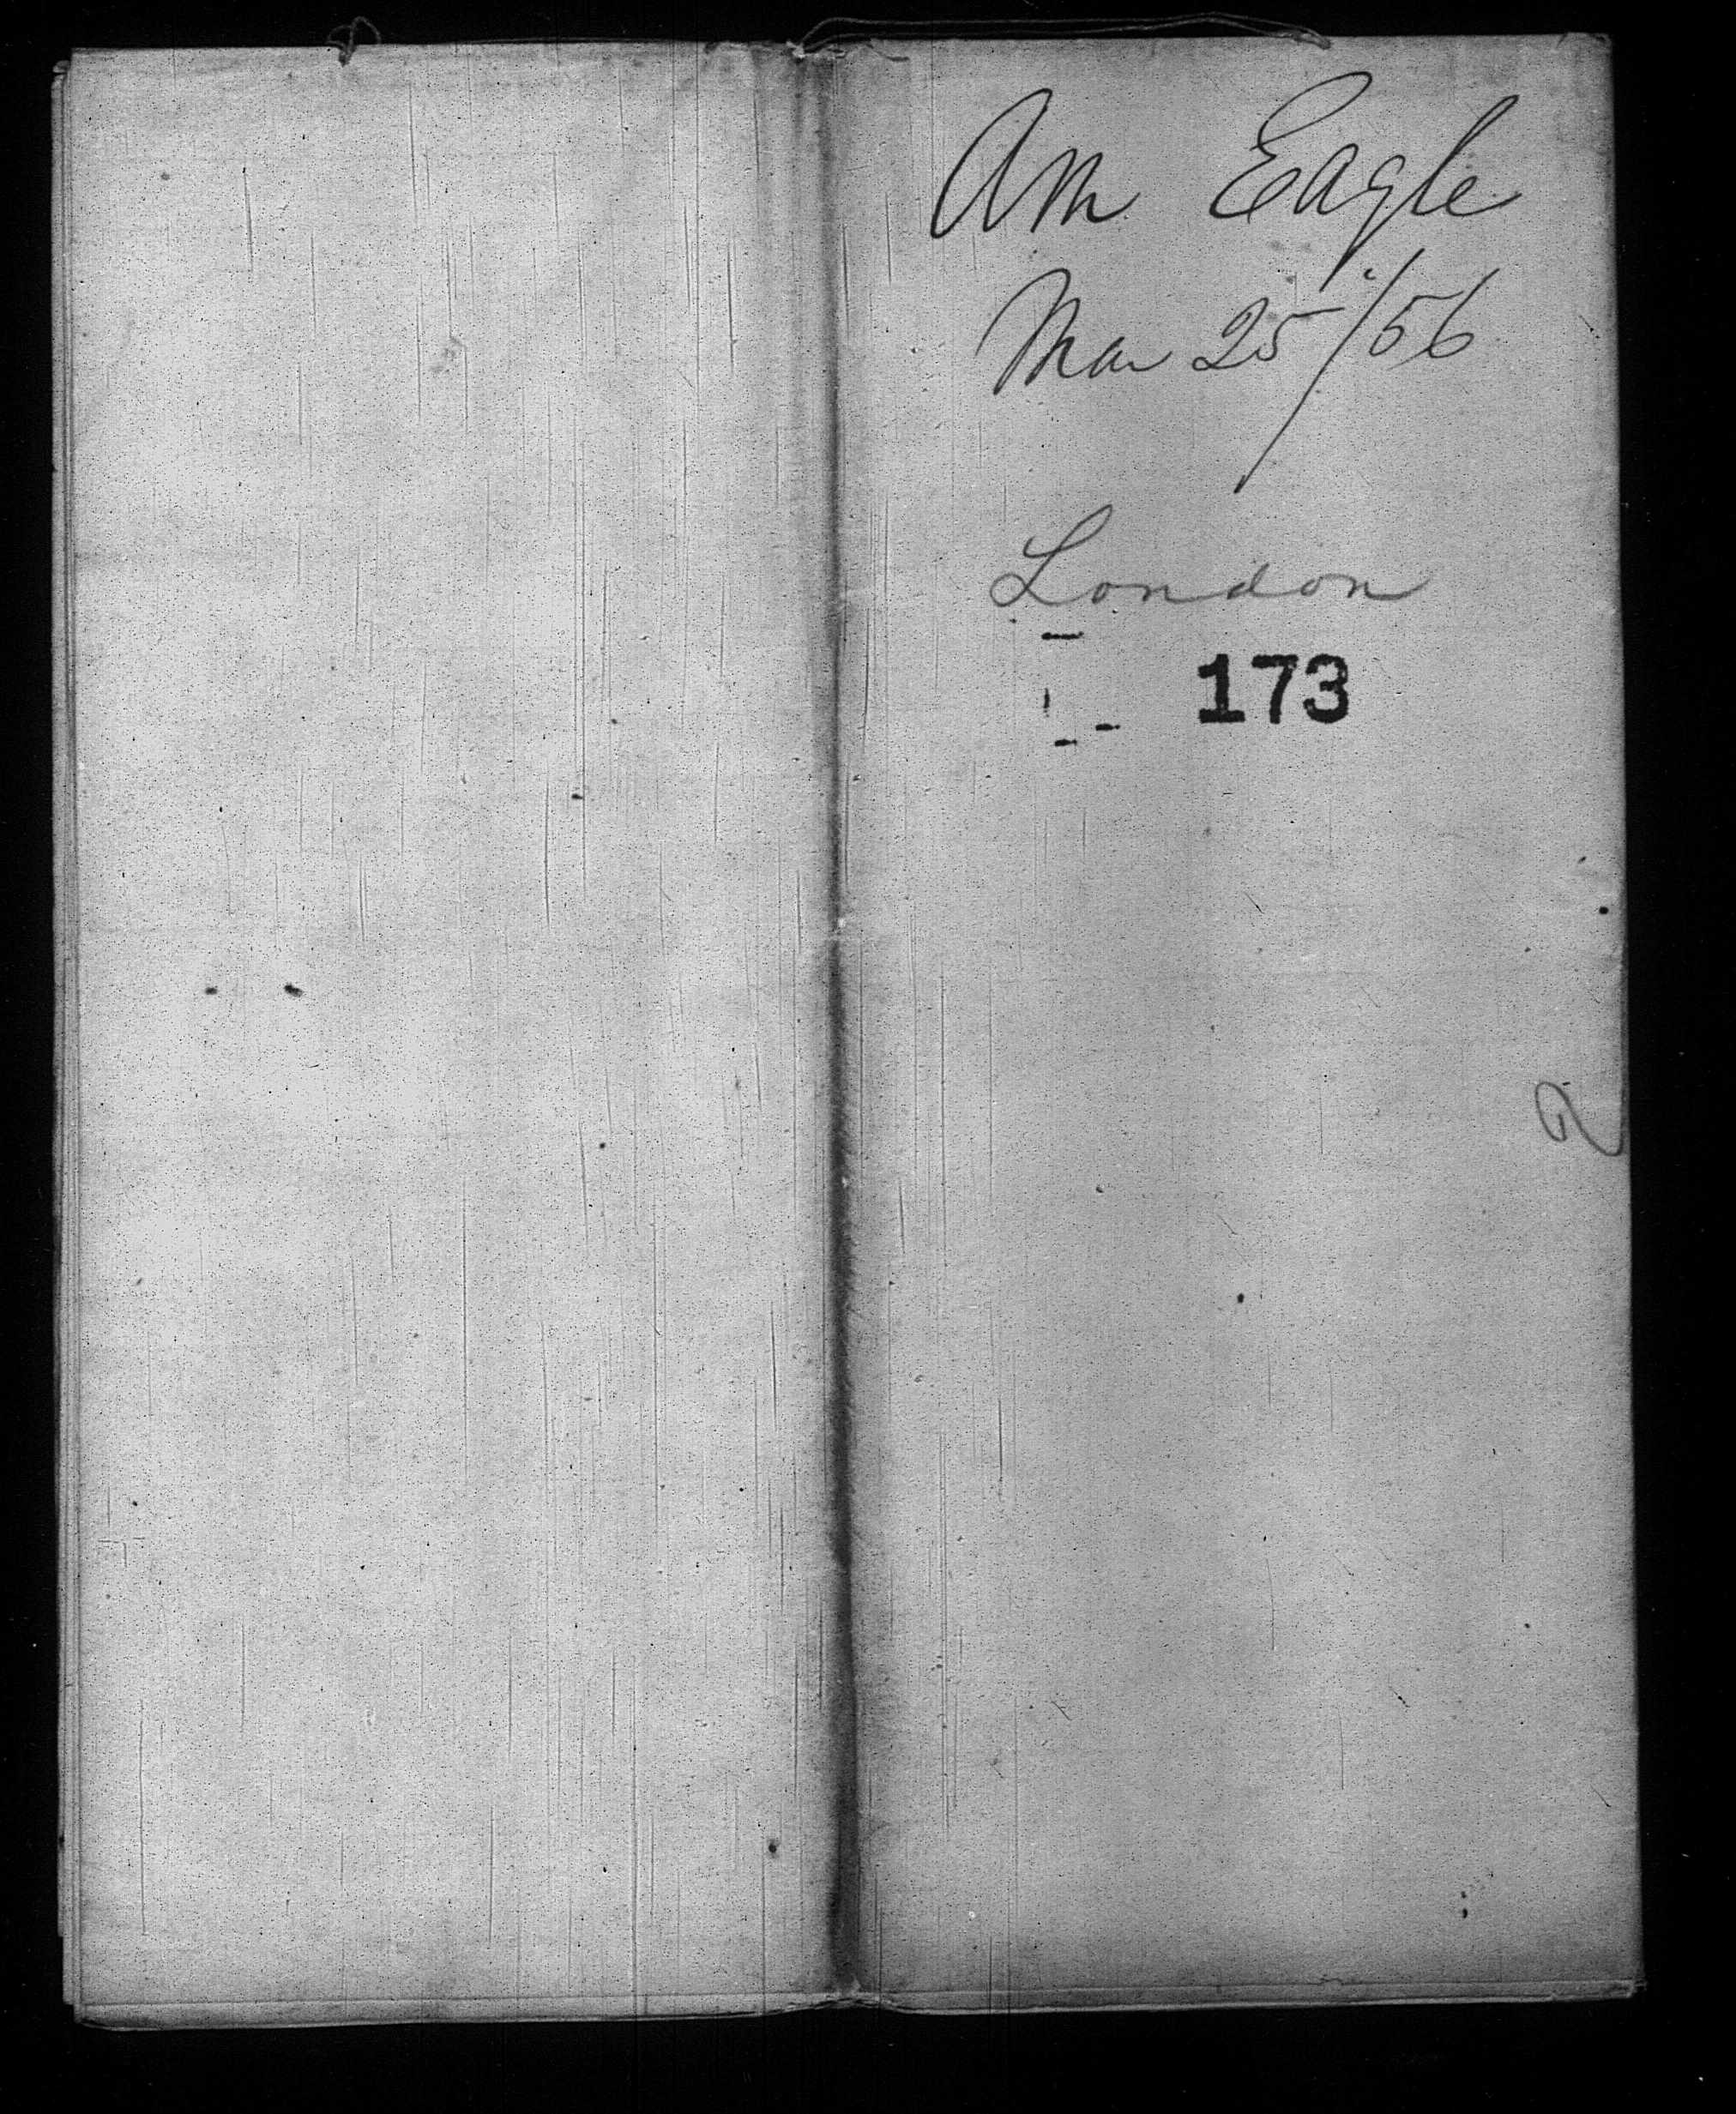 Am Eagle
Mar 25/56
London
173
2